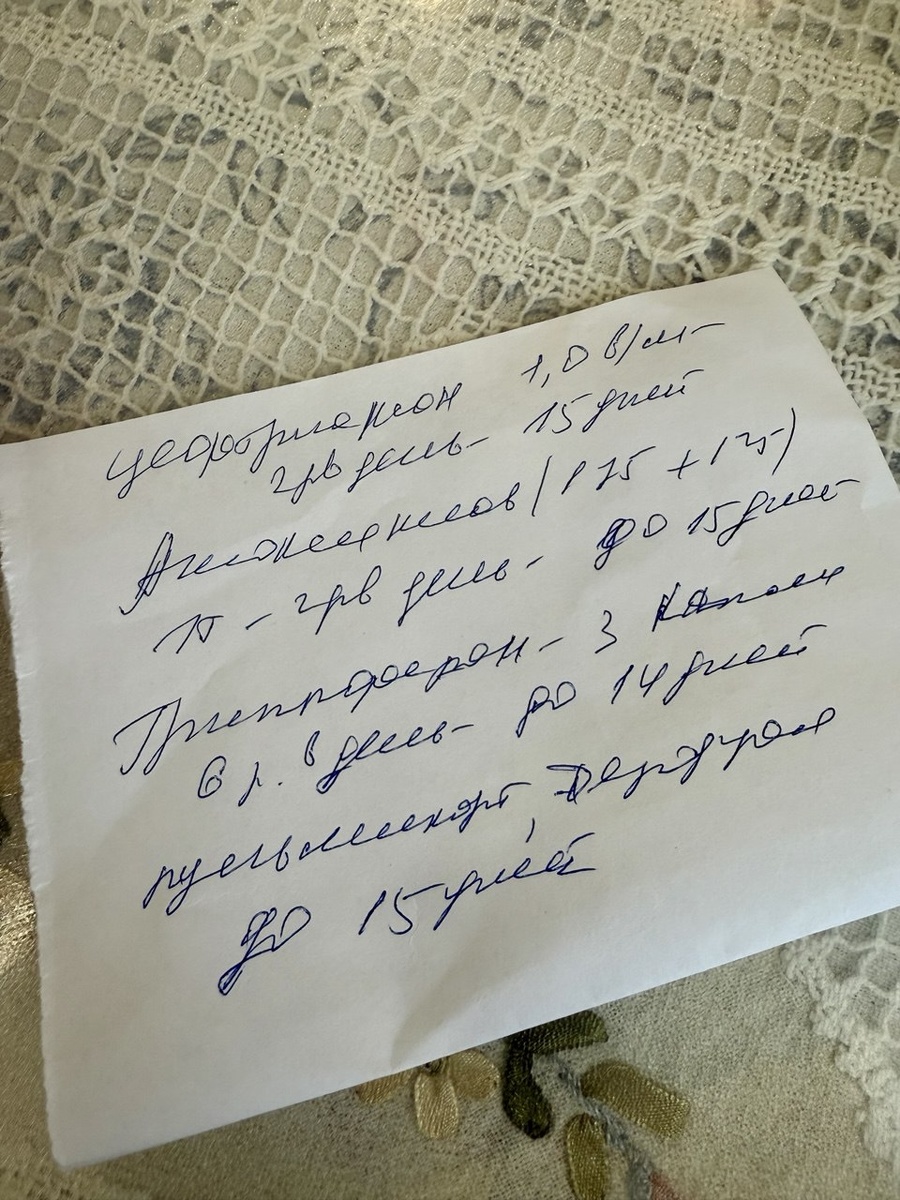 Цефтриаксон 1,0 в/м-
2 р в день - 15 дней
Амоксиклав (875 + 125)
1т - 2 р в день - до 15 дней
Гриппферон - 3 капли
6 р. в день - до 14 дней
пульмикорт, Беродуал
до 15 дней